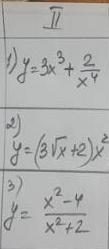 II
1) y=3x³+2/x⁴
2)
y=(3√x+2)x²
3)
y=(x²-4)/(x²+2)